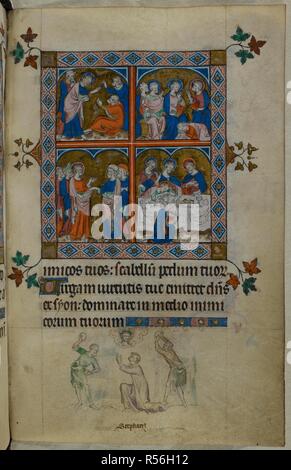 imicos tuos: scabellū pedum tuoꝝ.
Uirgam uirtutis tue emittet dn̄s
ex syon: dominare in medio inimi
corum tuorum
Stephan9
alamy
Image ID: R56H12
www.alamy.com